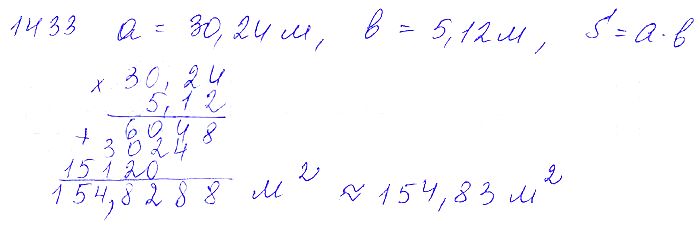 1433 a = 30,24 м, в = 5,12 м, S = a · в
× 30,24
5,12
+ 6048
3024
15120
154,8288 м² ≈ 154,83 м²